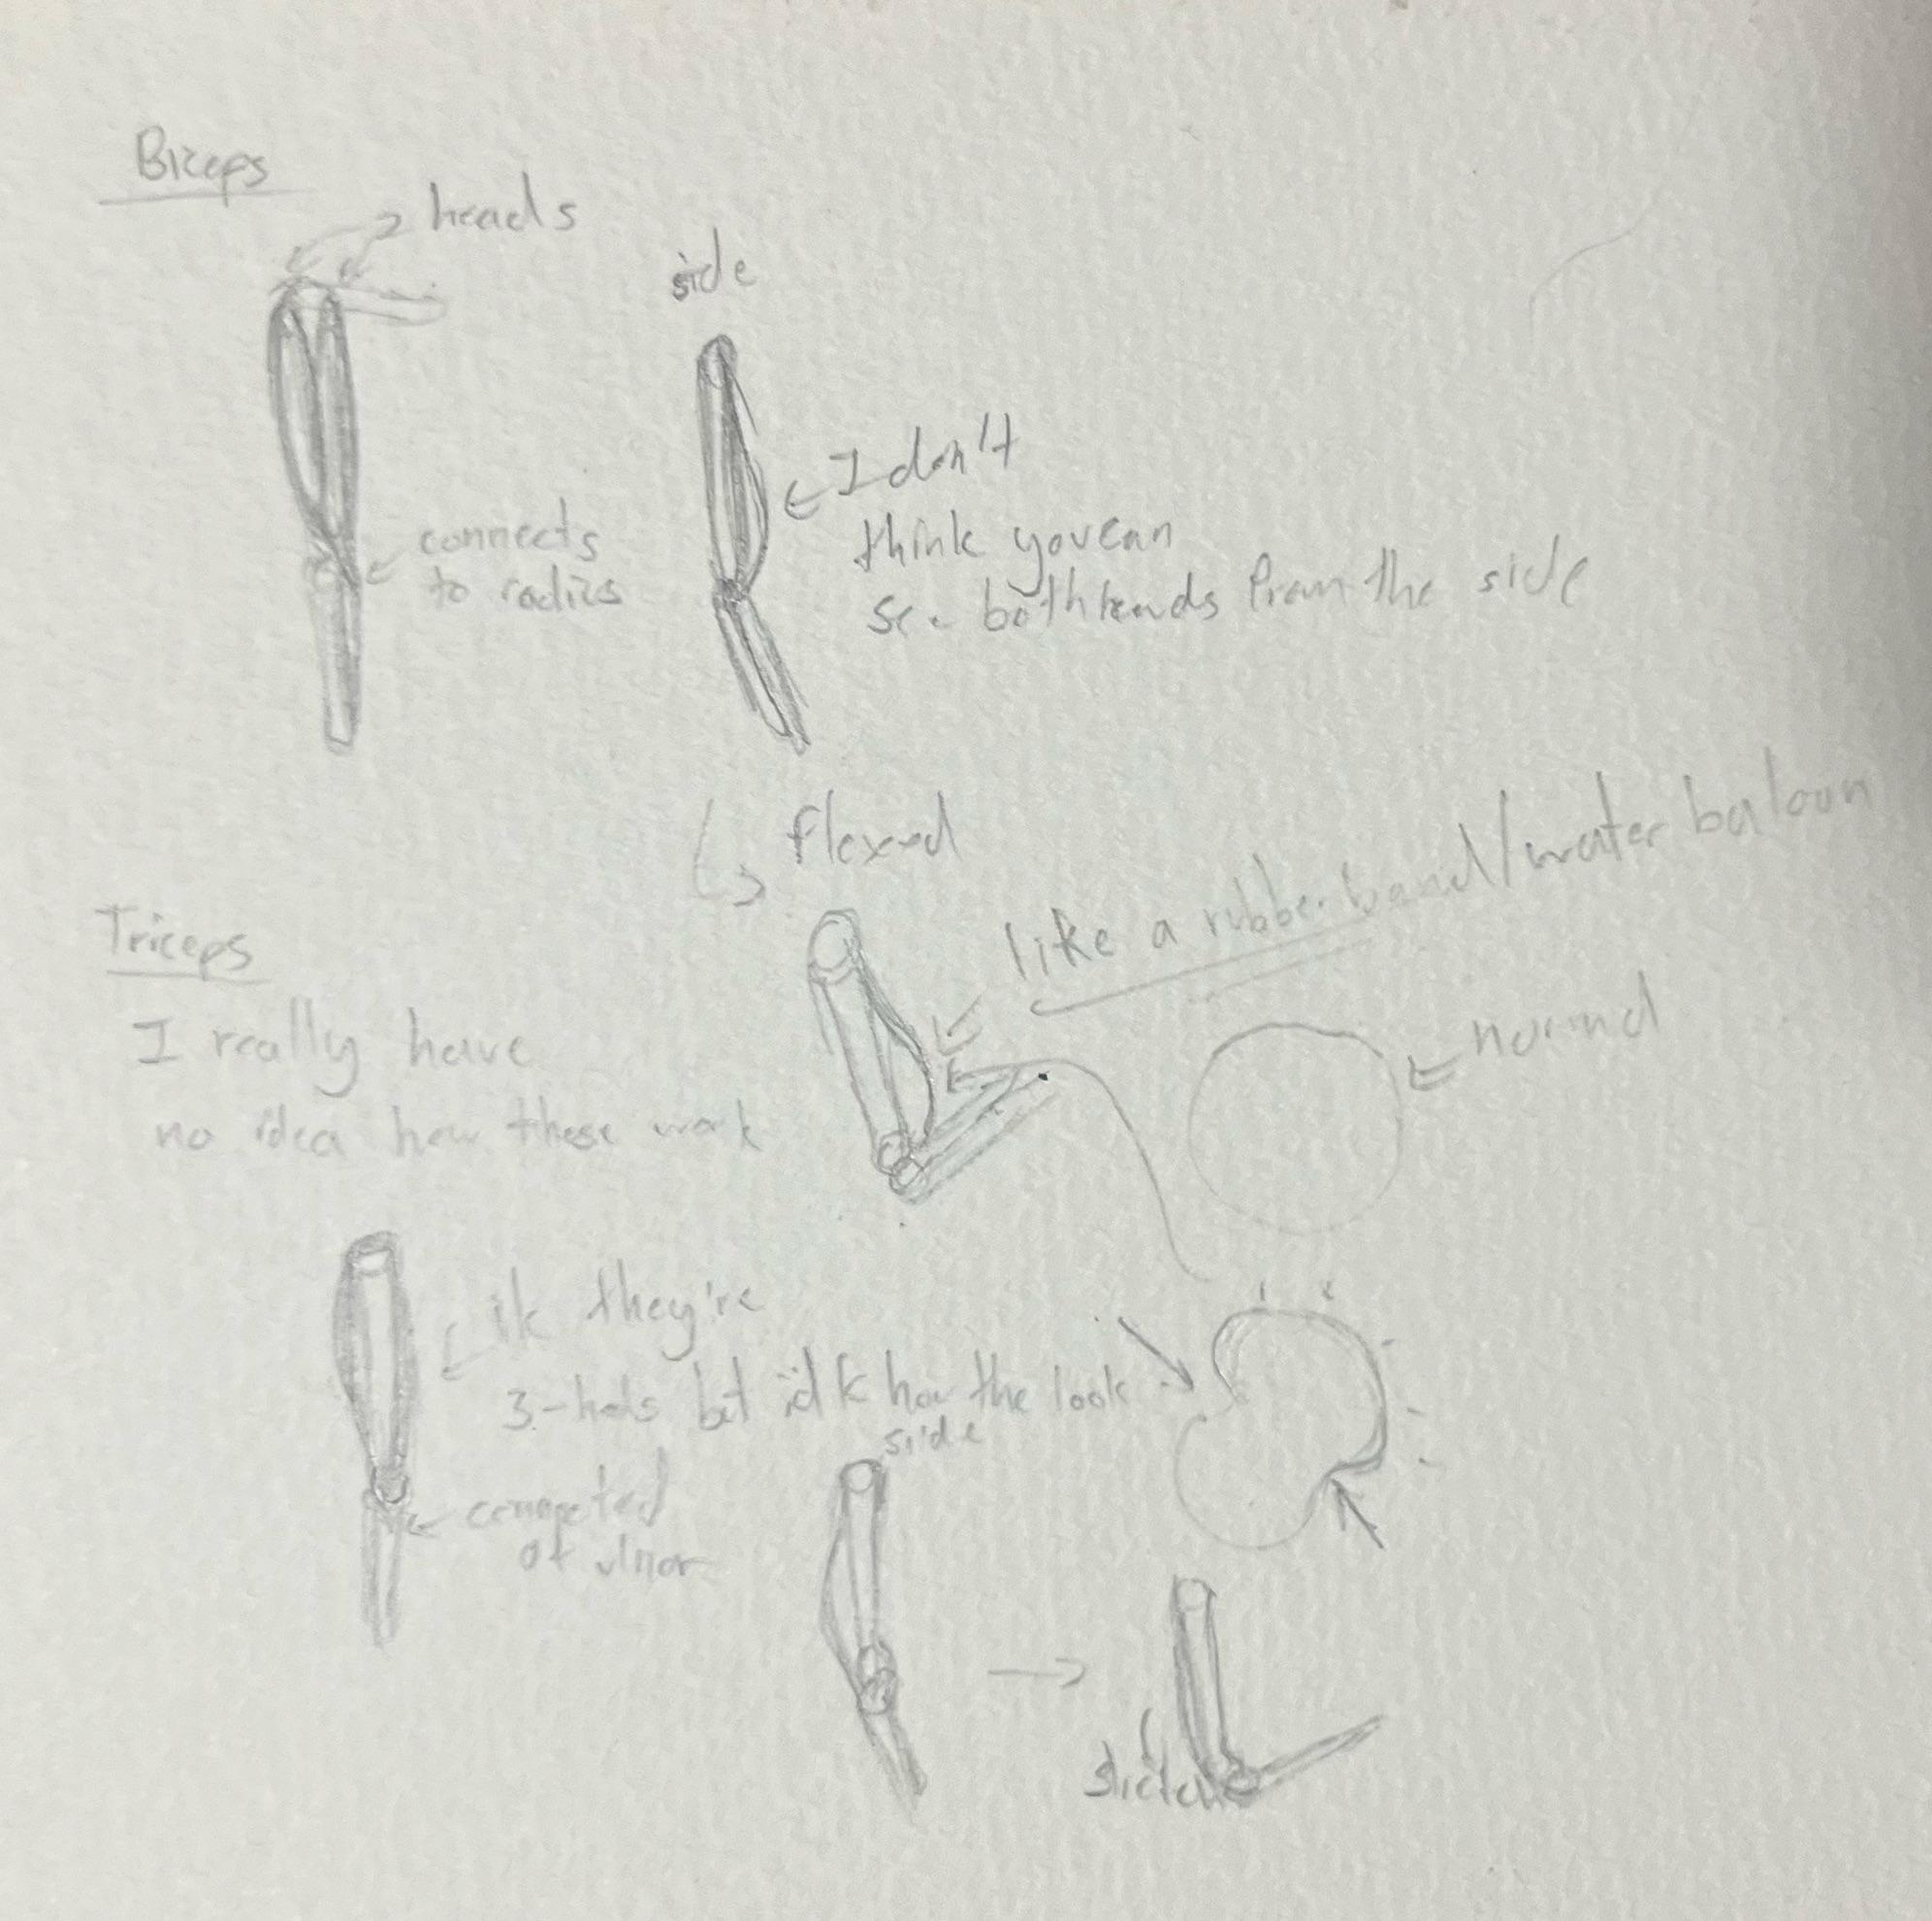 Biceps
2 heads
side
connects
to radius
I don't
think you can
see both heads from the side
flexed
like a rubber band/water baloon
normal
Triceps
I really have
no idea how these work
ik they're
3-heds but idk how the look
side
connected
at ulnar
stretch